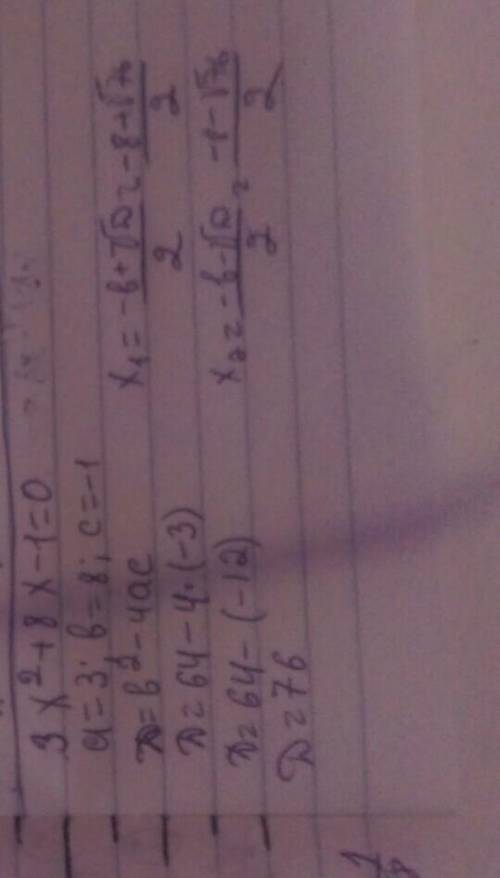 3x²+8x-1=0
a=3; b=8; c=-1
D=b²-4ac
D=64-4·(-3)
D=64-(-12)
D=76
x₁=(-b+√D)/2=(-8+√76)/2
x₂=(-b-√D)/2=(-8-√76)/2